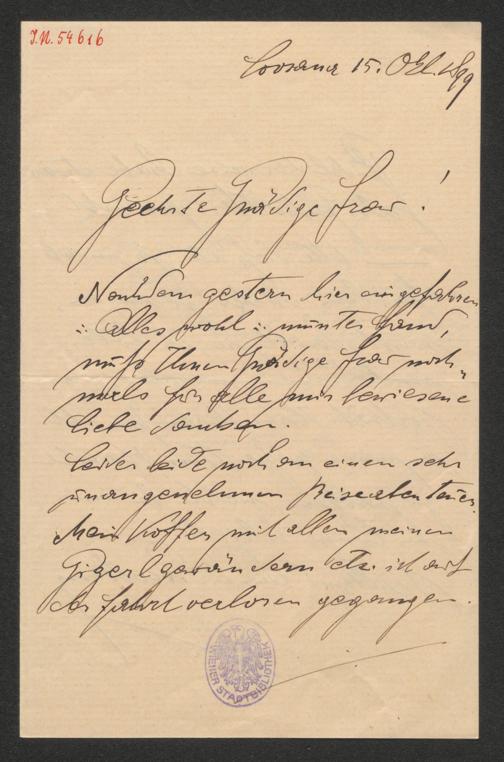 I.N. 54616
15. Okt. 1899
Geehrte Gnädige Frau!
Nachdem gestern hier eingefahren
:. alles wohl :. munter fand,
muß Ihnen Gnädige Frau noch-
mals für alle mir bewiesene
Liebe danken.
Leider leide noch an einem sehr
unangenehmen Reiseabenteuer.
Mein Koffer mit allen meinen
Gigerlgewändern etc. ist auf
der Fahrt verloren gegangen.
WIENER STADTBIBLIOTHEK